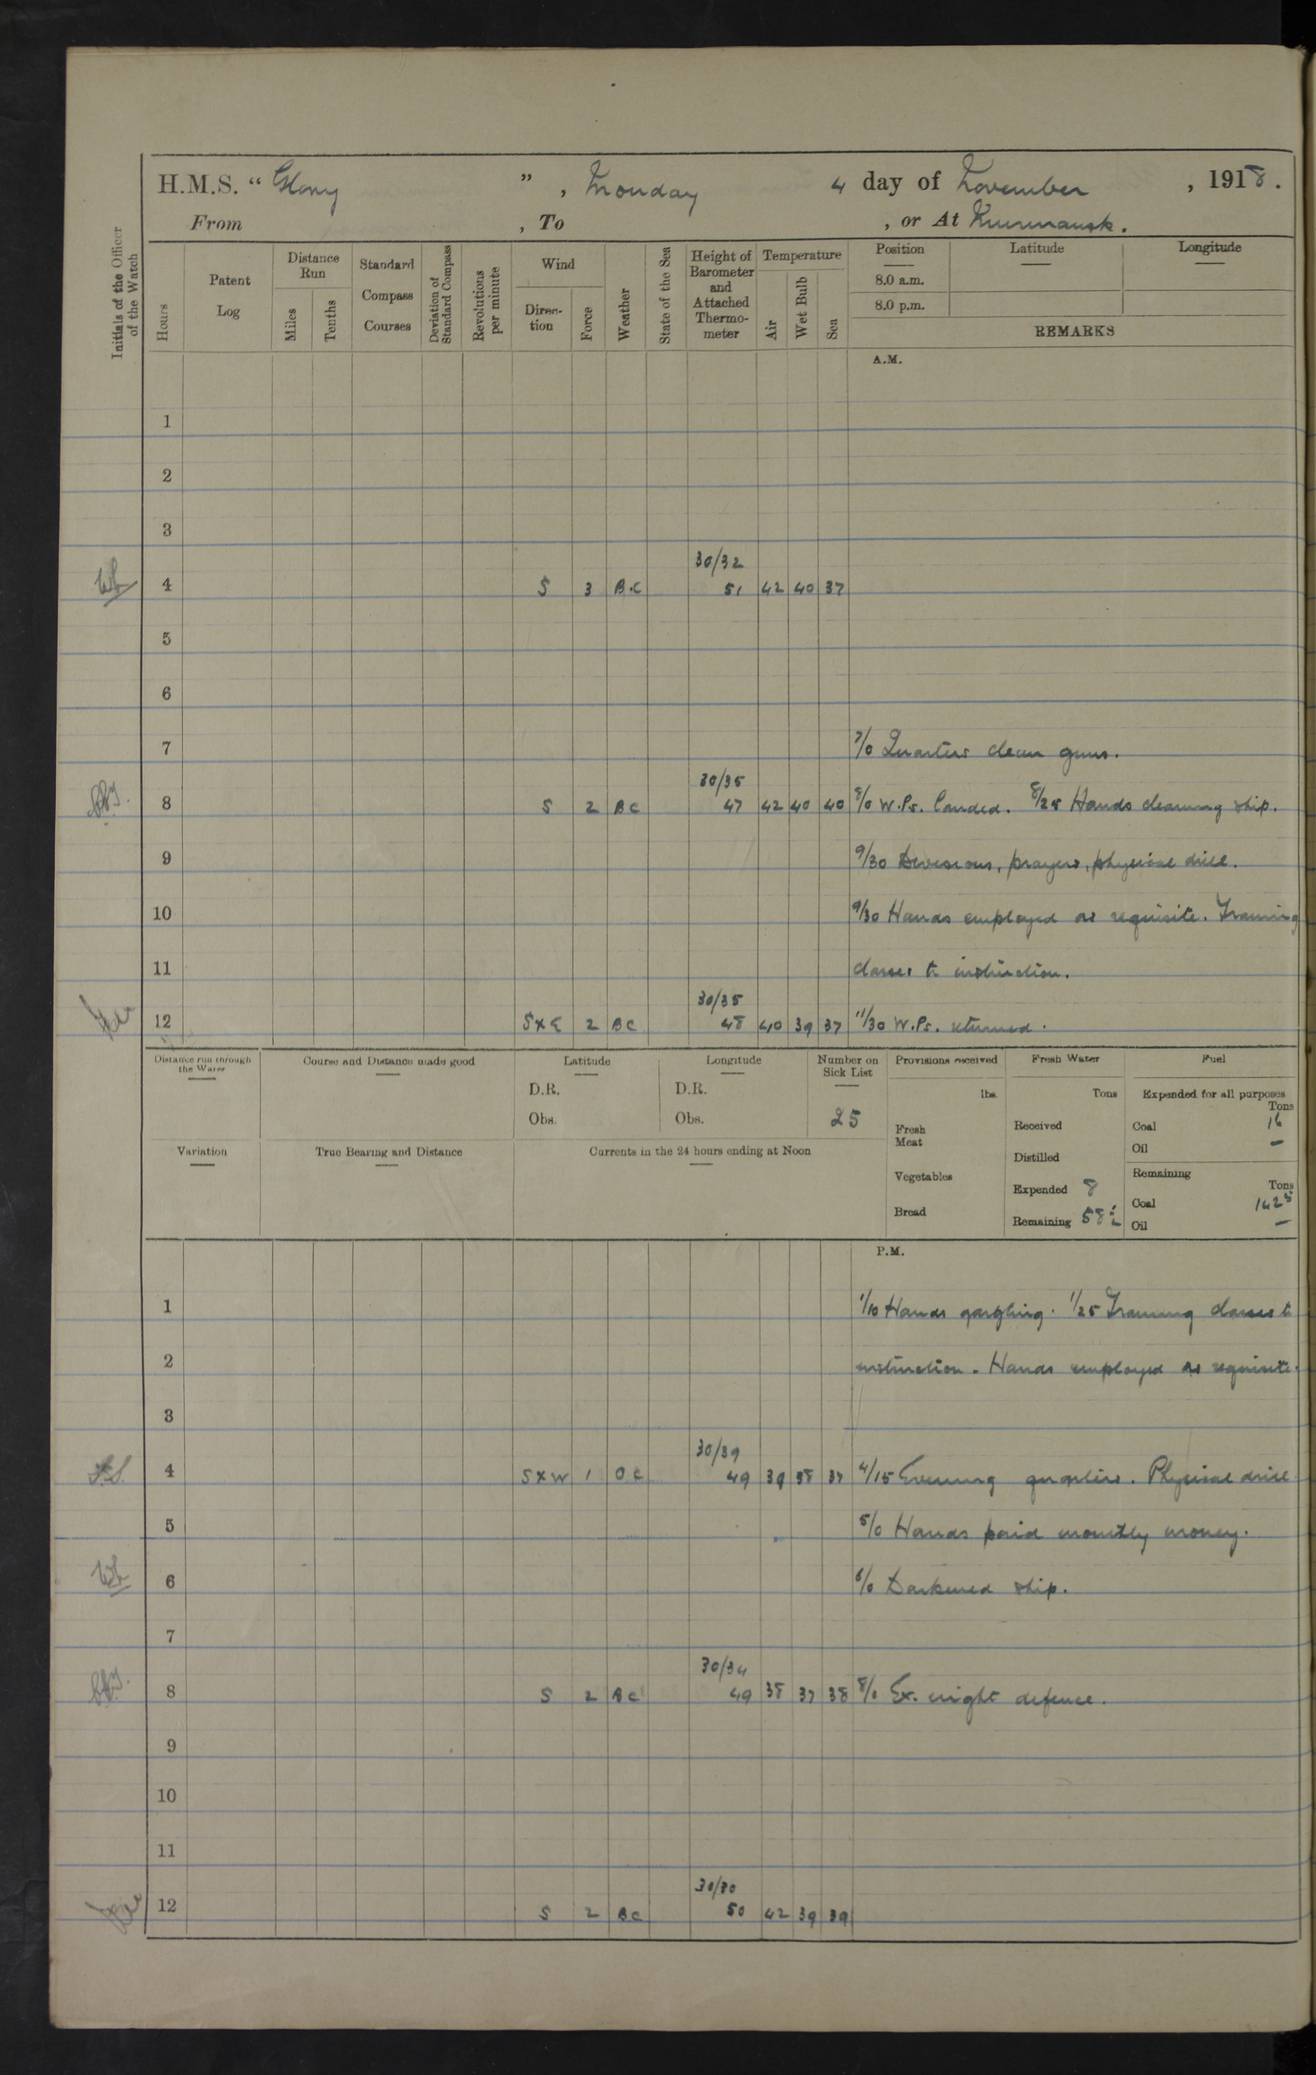 H.M.S. "Glory", Monday 4 day of November, 1918.
From , To , or At Murmansk.
Initials of the Officer of the Watch
Hours
Patent Log
Distance Run
Miles
Tenths
Standard Compass Courses
Deviation of Standard Compass
Revolutions per minute
Wind
Direc-tion
Force
Weather
State of the Sea
Height of Barometer and Attached Thermo-meter
Temperature
Air
Wet Bulb
Sea
Position
Latitude
Longitude
8.0 a.m.
8.0 p.m.
REMARKS
A.M.
1
2
3
30/32
4 S 3 B.C 51 42 40 37
5
6
7 7/0 Quarters clean guns.
30/35
8 S 2 BC 47 42 40 40 8/0 W.Ps. landed. 8/25 Hands cleaning ship.
9 9/30 Divisions, prayers, physical drill.
10 9/30 Hands employed as requisite. Training
11 classes to instruction.
30/35
12 SxE 2 BC 48 40 39 37 11/30 W.Ps. returned.
Distance run through the Water
Course and Distance made good
Latitude
D.R.
Obs.
Longitude
D.R.
Obs.
Number on Sick List
25
Provisions received
lbs.
Fresh Meat
Vegetables
Bread
Fresh Water
Tons
Received
Distilled
Expended 8
Remaining
Fuel
Expended for all purposes
Tons
Coal 16
Oil –
Remaining
Tons
Coal 1425
Oil –
Variation
True Bearing and Distance
Currents in the 24 hours ending at Noon
P.M.
1 1/10 Hands gargling. 1/25 Training classes to
2 instruction. Hands employed as requisite.
3
30/39
4 SxW 1 OC 49 39 38 37 4/15 Evening quarters. Physical drill
5 5/0 Hands paid monthly money.
6 6/0 Darkened ship.
7
30/34
8 S 2 BC 49 38 37 38 8/0 Ex. night defence.
9
10
11
30/30
12 S 2 BC 50 42 39 39